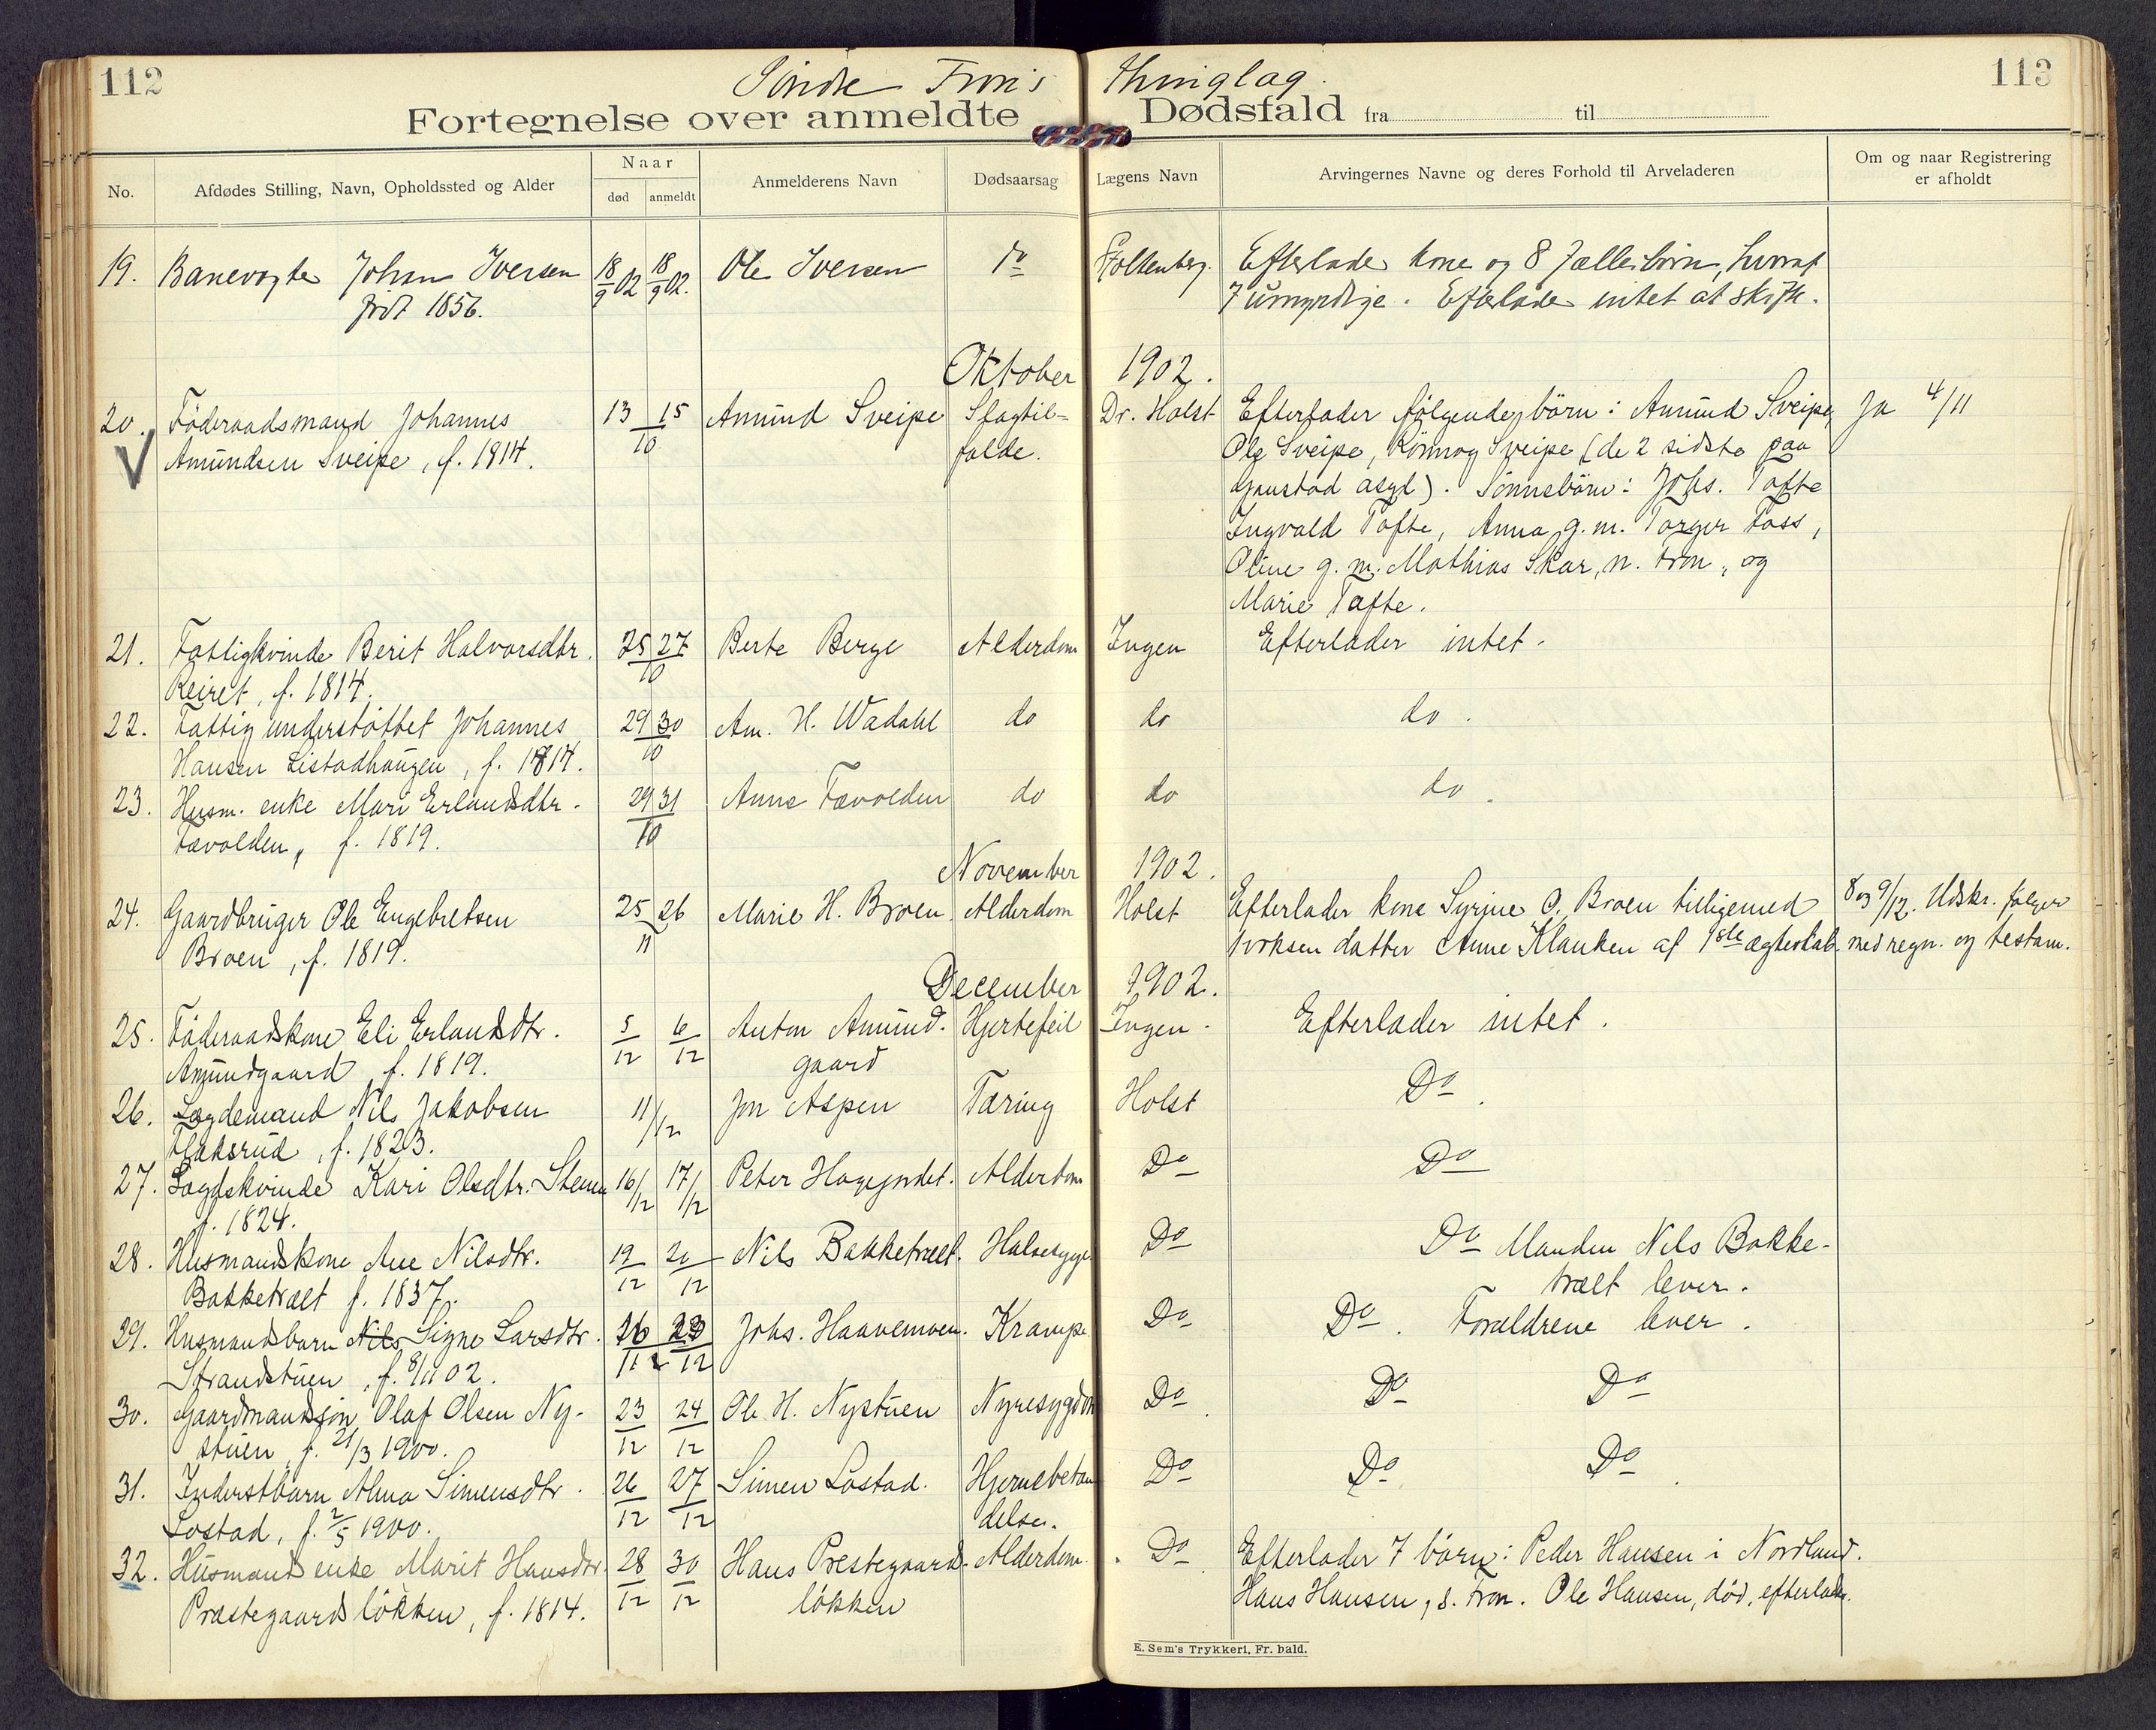 112
Söndre Fron's thinglag.
113
Fortegnelse over anmeldte Dødsfald fra til
No.
Afdødes Stilling, Navn, Opholdssted og Alder
Naar
død
anmeldt
Anmelderens Navn
Dødsaarsag
Lægens Navn
Arvingernes Navne og deres Forhold til Arveladeren
Om og naar Registrering
er afholdt
19. Banevogter Johan Iversen 18/9 02 18/9 02. Ole Iversen do Stoltenberg. Efterlader kone og 8 fællesbörn, hvoraf
født 1856. 7 umyndige. Efterlader intet at skifte.
Oktober 1902.
20. Föderaadsmand Johannes 13 15 Amund Sveipe Slagtil- Dr. Holst Efterlader fölgende börn: Amund Sveipe, Ja 4/11
Amundsen Sveipe, f. 1814. 10 fælde. Ole Sveipe, Rönnog Sveipe (de 2 sidste paa
Gaustad asyl). Sönnebörn: Johs. Tofte
Ingvald Tofte, Anna g. m. Torger Foss,
Oline g. m. Mathias Skar, n. Fron, og
Marie Tofte.
21. Fattigkvinde Berit Halvorsdtr. 25 27 Berte Berge Alderdom Ingen Efterlader intet.
Reiret, f. 1814. 10
22. Fattig understöttet Johannes 29 30 Am. H. Wadahl do do do.
Hansen Listadhaugen, f. 1814. 10
23. Husm. enke Mari Erlandsdtr. 29 31 Anne Tævolden do do do.
Tævolden, f. 1819. 10
November 1902.
24. Gaardbruger Ole Engebretsen 25 26 Marie H. Broen Alderdom Holst Efterlader kone Syrjne O. Broen tilligemed 8 og 9/12. Udskr. følger
Broen, f. 1819. 11 voksen datter Anne Klauken af 1ste ægteskab. med regn. og testam.
December 1902.
25. Föderaadskone Eli Erlandsdtr. 5/12 6/12 Anton Amund- Hjertefeil Ingen. Efterlader intet.
Amundgaard f. 1819. gaard
26. Lægdemand Nils Jakobsen 11/12 Jon Aspen Tæring Holst Do.
Flaksrud, f. 1823.
27. Lægdskvinde Kari Olsdtr. Stenen 16/12 17/12 Peter Hagejordet. Alderdom Do Do
f. 1824.
28. Husmandskone Ane Nilsdtr. 19/12 20/12 Nils Bakketrælt. Halsesyge Do Do Manden Nils Bakke-
Bakketrælt f. 1837. trælt lever.
29. Husmandsbarn Nils Signe Larsdtr. 26/11 23/12 Johs. Haavemoen. Krampe Do Do. Forældrene lever.
Strandstuen, f. 8/11 02.
30. Gaardmandssön Olaf Olsen Ny- 23/12 24/12 Ole H. Nystuen Nyresygdom Do. Do Do
stuen, f. 21/3 1900.
31. Inderstbarn Alma Simensdtr. 26/12 27/12 Simen Lostad. Hjernebetæn Do Do Do.
Lostad, f. 2/5 1900. delse.
32. Husmandsenke Marit Hansdtr. 28/12 30/12 Hans Prestegaards- Alderdom. Do Efterlader 7 börn: Peder Hansen i Nordland.
Præstegaardslökken, f. 1814. lökken Hans Hansen, s. Fron. Ole Hansen, död, efterlader.
E. Sem's Trykkeri, Fr. hald.